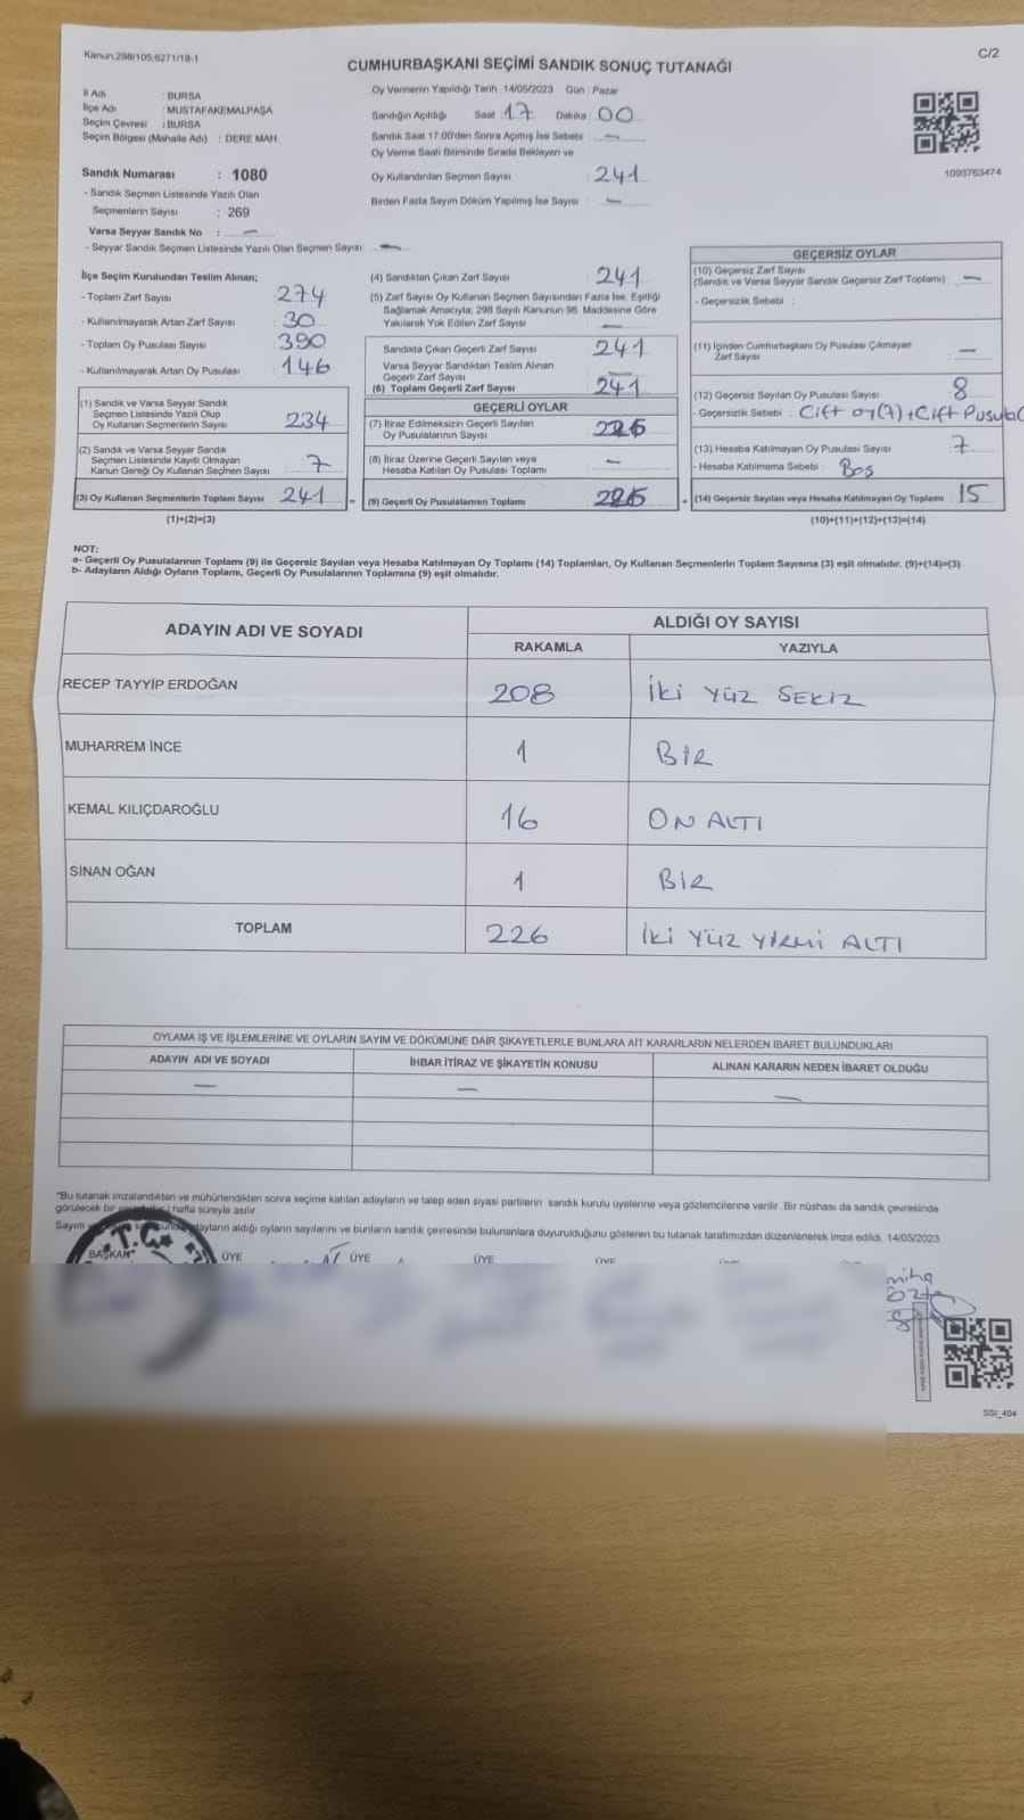 Kanun,298/105,6271/18-1
C/2
CUMHURBAŞKANI SEÇİMİ SANDIK SONUÇ TUTANAĞI
İl Adı : BURSA
İlçe Adı : MUSTAFAKEMALPAŞA
Seçim Çevresi : BURSA
Seçim Bölgesi (Mahalle Adı) : DERE MAH.
Oy Vermenin Yapıldığı Tarih :14/05/2023 Gün : Pazar
Sandığın Açıldığı Saat :17 Dakika : 00
Sandık Saat 17:00'den Sonra Açılmış İse Sebebi : —
Oy Verme Saati Bitiminde Sırada Bekleyen ve
Oy Kullandırılan Seçmen Sayısı : 241
Birden Fazla Sayım Döküm Yapılmış İse Sayısı : —
1093763474
Sandık Numarası : 1080
- Sandık Seçmen Listesinde Yazılı Olan
Seçmenlerin Sayısı : 269
Varsa Seyyar Sandık No : —
- Seyyar Sandık Seçmen Listesinde Yazılı Olan Seçmen Sayısı : —
İlçe Seçim Kurulundan Teslim Alınan;
- Toplam Zarf Sayısı 274
- Kullanılmayarak Artan Zarf Sayısı 30
- Toplam Oy Pusulası Sayısı 390
- Kullanılmayarak Artan Oy Pusulası 146
(1) Sandık ve Varsa Seyyar Sandık
Seçmen Listesinde Yazılı Olup
Oy Kullanan Seçmenlerin Sayısı 234
(2) Sandık ve Varsa Seyyar Sandık
Seçmen Listesinde Kayıtlı Olmayan
Kanun Gereği Oy Kullanan Seçmen Sayısı 7
(3) Oy Kullanan Seçmenlerin Toplam Sayısı 241
(1)+(2)=(3)
(4) Sandıktan Çıkan Zarf Sayısı 241
(5) Zarf Sayısı Oy Kullanan Seçmen Sayısından Fazla İse, Eşitliği
Sağlamak Amacıyla; 298 Sayılı Kanunun 98. Maddesine Göre
Yakılarak Yok Edilen Zarf Sayısı —
Sandıkta Çıkan Geçerli Zarf Sayısı 241
Varsa Seyyar Sandıktan Teslim Alınan
Geçerli Zarf Sayısı —
(6) Toplam Geçerli Zarf Sayısı 241
GEÇERLİ OYLAR
(7) İtiraz Edilmeksizin Geçerli Sayılan
Oy Pusulalarının Sayısı 226
(8) İtiraz Üzerine Geçerli Sayılan veya
Hesaba Katılan Oy Pusulası Toplamı —
= (9) Geçerli Oy Pusulalarının Toplamı 226
GEÇERSİZ OYLAR
(10) Geçersiz Zarf Sayısı
(Sandık ve Varsa Seyyar Sandık Geçersiz Zarf Toplamı) —
- Geçersizlik Sebebi :
(11) İçinden Cumhurbaşkanı Oy Pusulası Çıkmayan
Zarf Sayısı —
(12) Geçersiz Sayılan Oy Pusulası Sayısı 8
- Geçersizlik Sebebi : Çift oy(7)+Çift Pusula(
(13) Hesaba Katılmayan Oy Pusulası Sayısı 7
- Hesaba Katılmama Sebebi : Boş
+ (14) Geçersiz Sayılan veya Hesaba Katılmayan Oy Toplamı 15
(10)+(11)+(12)+(13)=(14)
NOT:
a- Geçerli Oy Pusulalarının Toplamı (9) ile Geçersiz Sayılan veya Hesaba Katılmayan Oy Toplamı (14) Toplamları, Oy Kullanan Seçmenlerin Toplam Sayısına (3) eşit olmalıdır. (9)+(14)=(3)
b- Adayların Aldığı Oyların Toplamı, Geçerli Oy Pusulalarının Toplamına (9) eşit olmalıdır.
ADAYIN ADI VE SOYADI ALDIĞI OY SAYISI
RAKAMLA YAZIYLA
RECEP TAYYİP ERDOĞAN 208 İKİ YÜZ SEKİZ
MUHARREM İNCE 1 BİR
KEMAL KILIÇDAROĞLU 16 ON ALTI
SİNAN OĞAN 1 BİR
TOPLAM 226 İKİ YÜZ YİRMİ ALTI
OYLAMA İŞ VE İŞLEMLERİNE VE OYLARIN SAYIM VE DÖKÜMÜNE DAİR ŞİKAYETLERLE BUNLARA AİT KARARLARIN NELERDEN İBARET BULUNDUKLARI
ADAYIN ADI VE SOYADI İHBAR İTİRAZ VE ŞİKAYETİN KONUSU ALINAN KARARIN NEDEN İBARET OLDUĞU
— — —
"Bu tutanak imzalandıktan ve mühürlendikten sonra seçime katılan adayların ve talep eden siyasi partilerin sandık kurulu üyelerine veya gözlemcilerine verilir. Bir nüshası da sandık çevresinde
görülecek bir hafta süreyle asılır
Sayım adayların aldığı oyların sayılarını ve bunların sandık çevresinde bulunanlara duyurulduğunu gösteren bu tutanak tarafımızdan düzenlenerek imza edildi. 14/05/2023
T.C.
BAŞKAN ÜYE ÜYE ÜYE ÜYE
SSİ_404